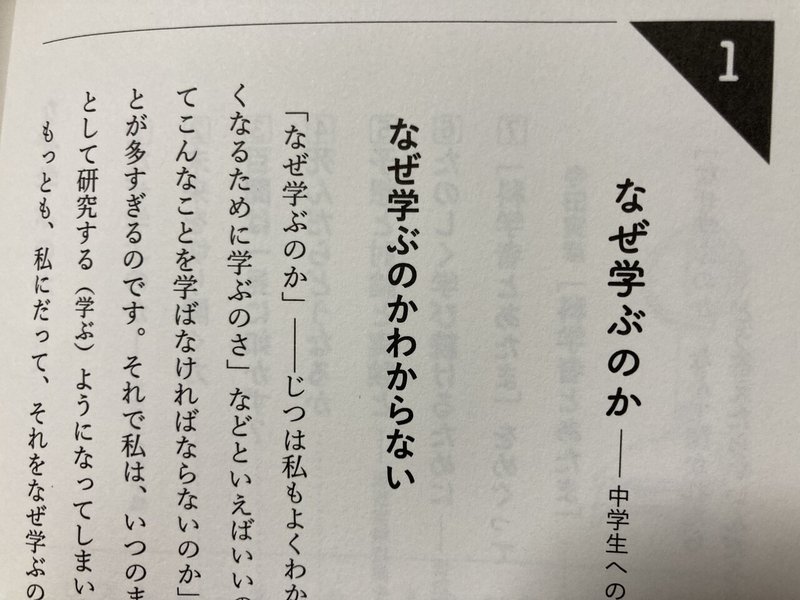 1
なぜ学ぶのか――中学生への
なぜ学ぶのかわからない
「なぜ学ぶのか」――じつは私もよくわか
くなるために学ぶのさ」などといえばいいの
てこんなことを学ばなければならないのか」
とが多すぎるのです。それで私は、いつのま
として研究する（学ぶ）ようになってしまい
もっとも、私にだって、それをなぜ学ぶの